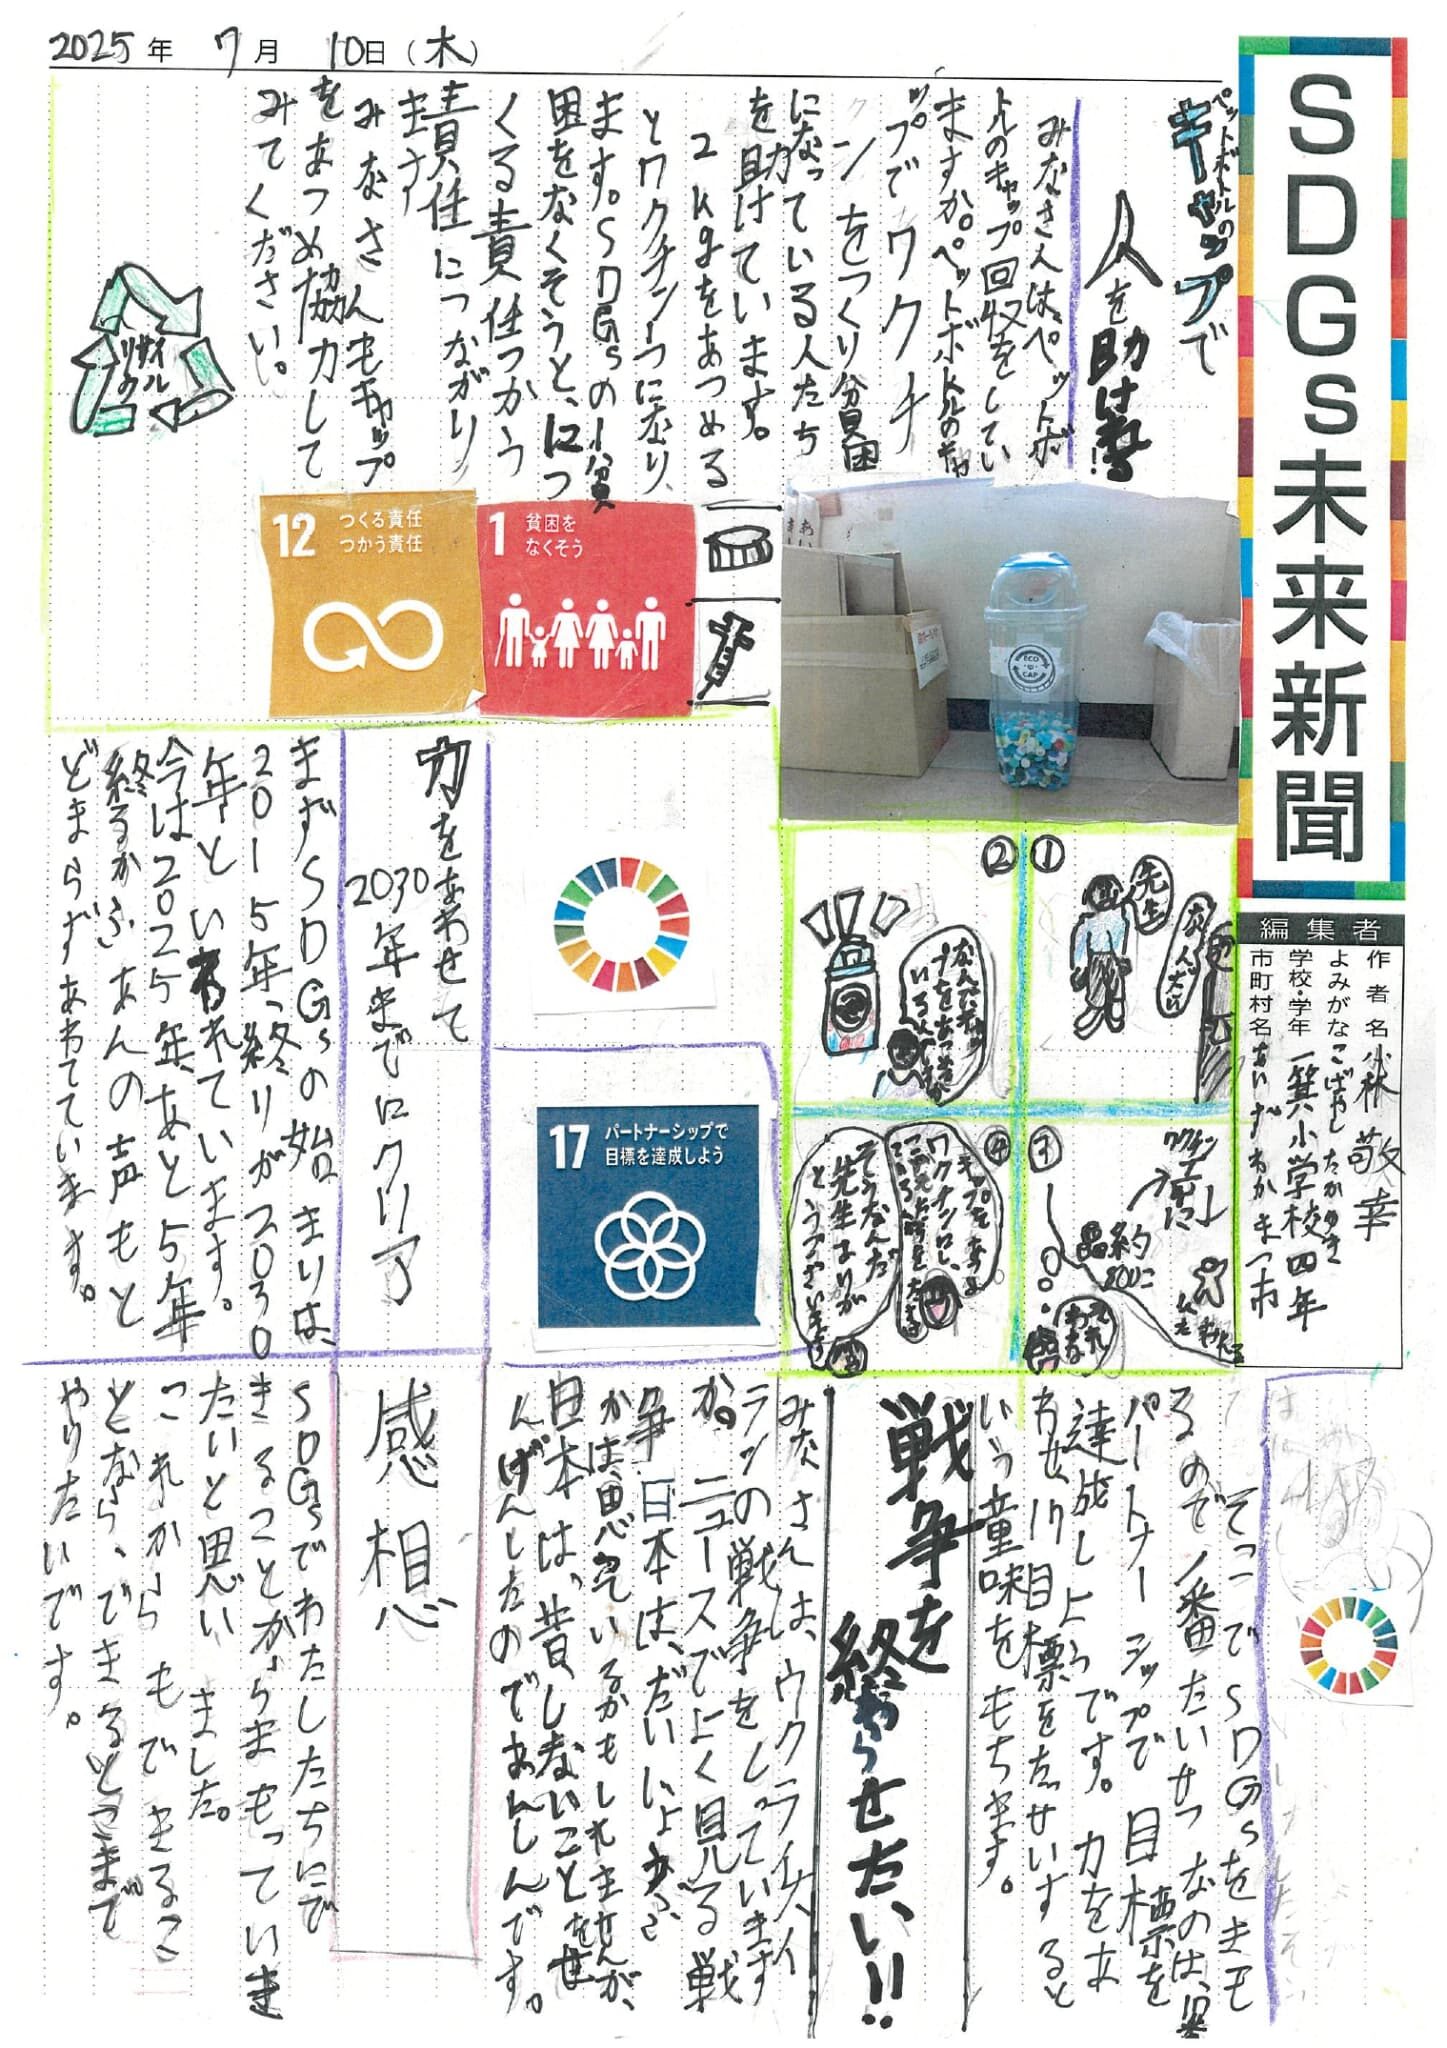 2025年 7月 10日(木)
SDGs未来新聞
編集者
作者名 小林 敬幸
よみがな こばやし たかゆき
学校・学年 一箕小学校 四年
市町村名 あいづわかまつ市
ペットボトルの
キャップで
人を助けれる!
みなさんは、ペットボ
トルのキャップ回収をしてい
ますか。ペットボトルのキャ
ップでワクチ
ンをつくり分貝困
になっている人たち
を助けています。
2kgをあつめる
とワクチン一つになり、
ます。SDGsの1分貝
困をなくそうと、12つ
くる責任つかう
責任につながり
ます
みなさんもキャップ
をあつめ協力して
みてください。
リサイクル
ECO
CAP
1 貧困を
なくそう
12 つくる責任
つかう責任
①
先生
なんだい
②
なんでキャッ
プをあつめて
いるん
③
ワクチン
約
④
キャップをあつめ
ワクチンにし、
そうなんだ
先生ありが
とうございます
17 パートナーシップで
目標を達成しよう
力をあわせて
2030年までにクリア
まずSDGsの始まりは、
2015年、終りが2030
年といわれています。
今は2025年、あと5年
終るかふあんの声もと
どまらずあれています。
そこでSDGsをまも
るので1番たいせつなのは、
パートナーシップで目標を
達成しようです。力をあ
わせ、17目標をたっせいすると
いう童味をもちます。
戦争を
終わらせたい!!
みなさんは、ウクライナ、イ
ランの戦争をしっています
か。ニュースでよく見る戦
争 日本は、だいじょうぶ
かは思っているかもしれませんが、
日本は、昔しないことをせ
んげんしたのであんしんです。
感想
SDGsでわたしたちにで
きることからまもっていき
たいと思い ました。
これからもできるこ
となら、できるとこまで
やりたいです。